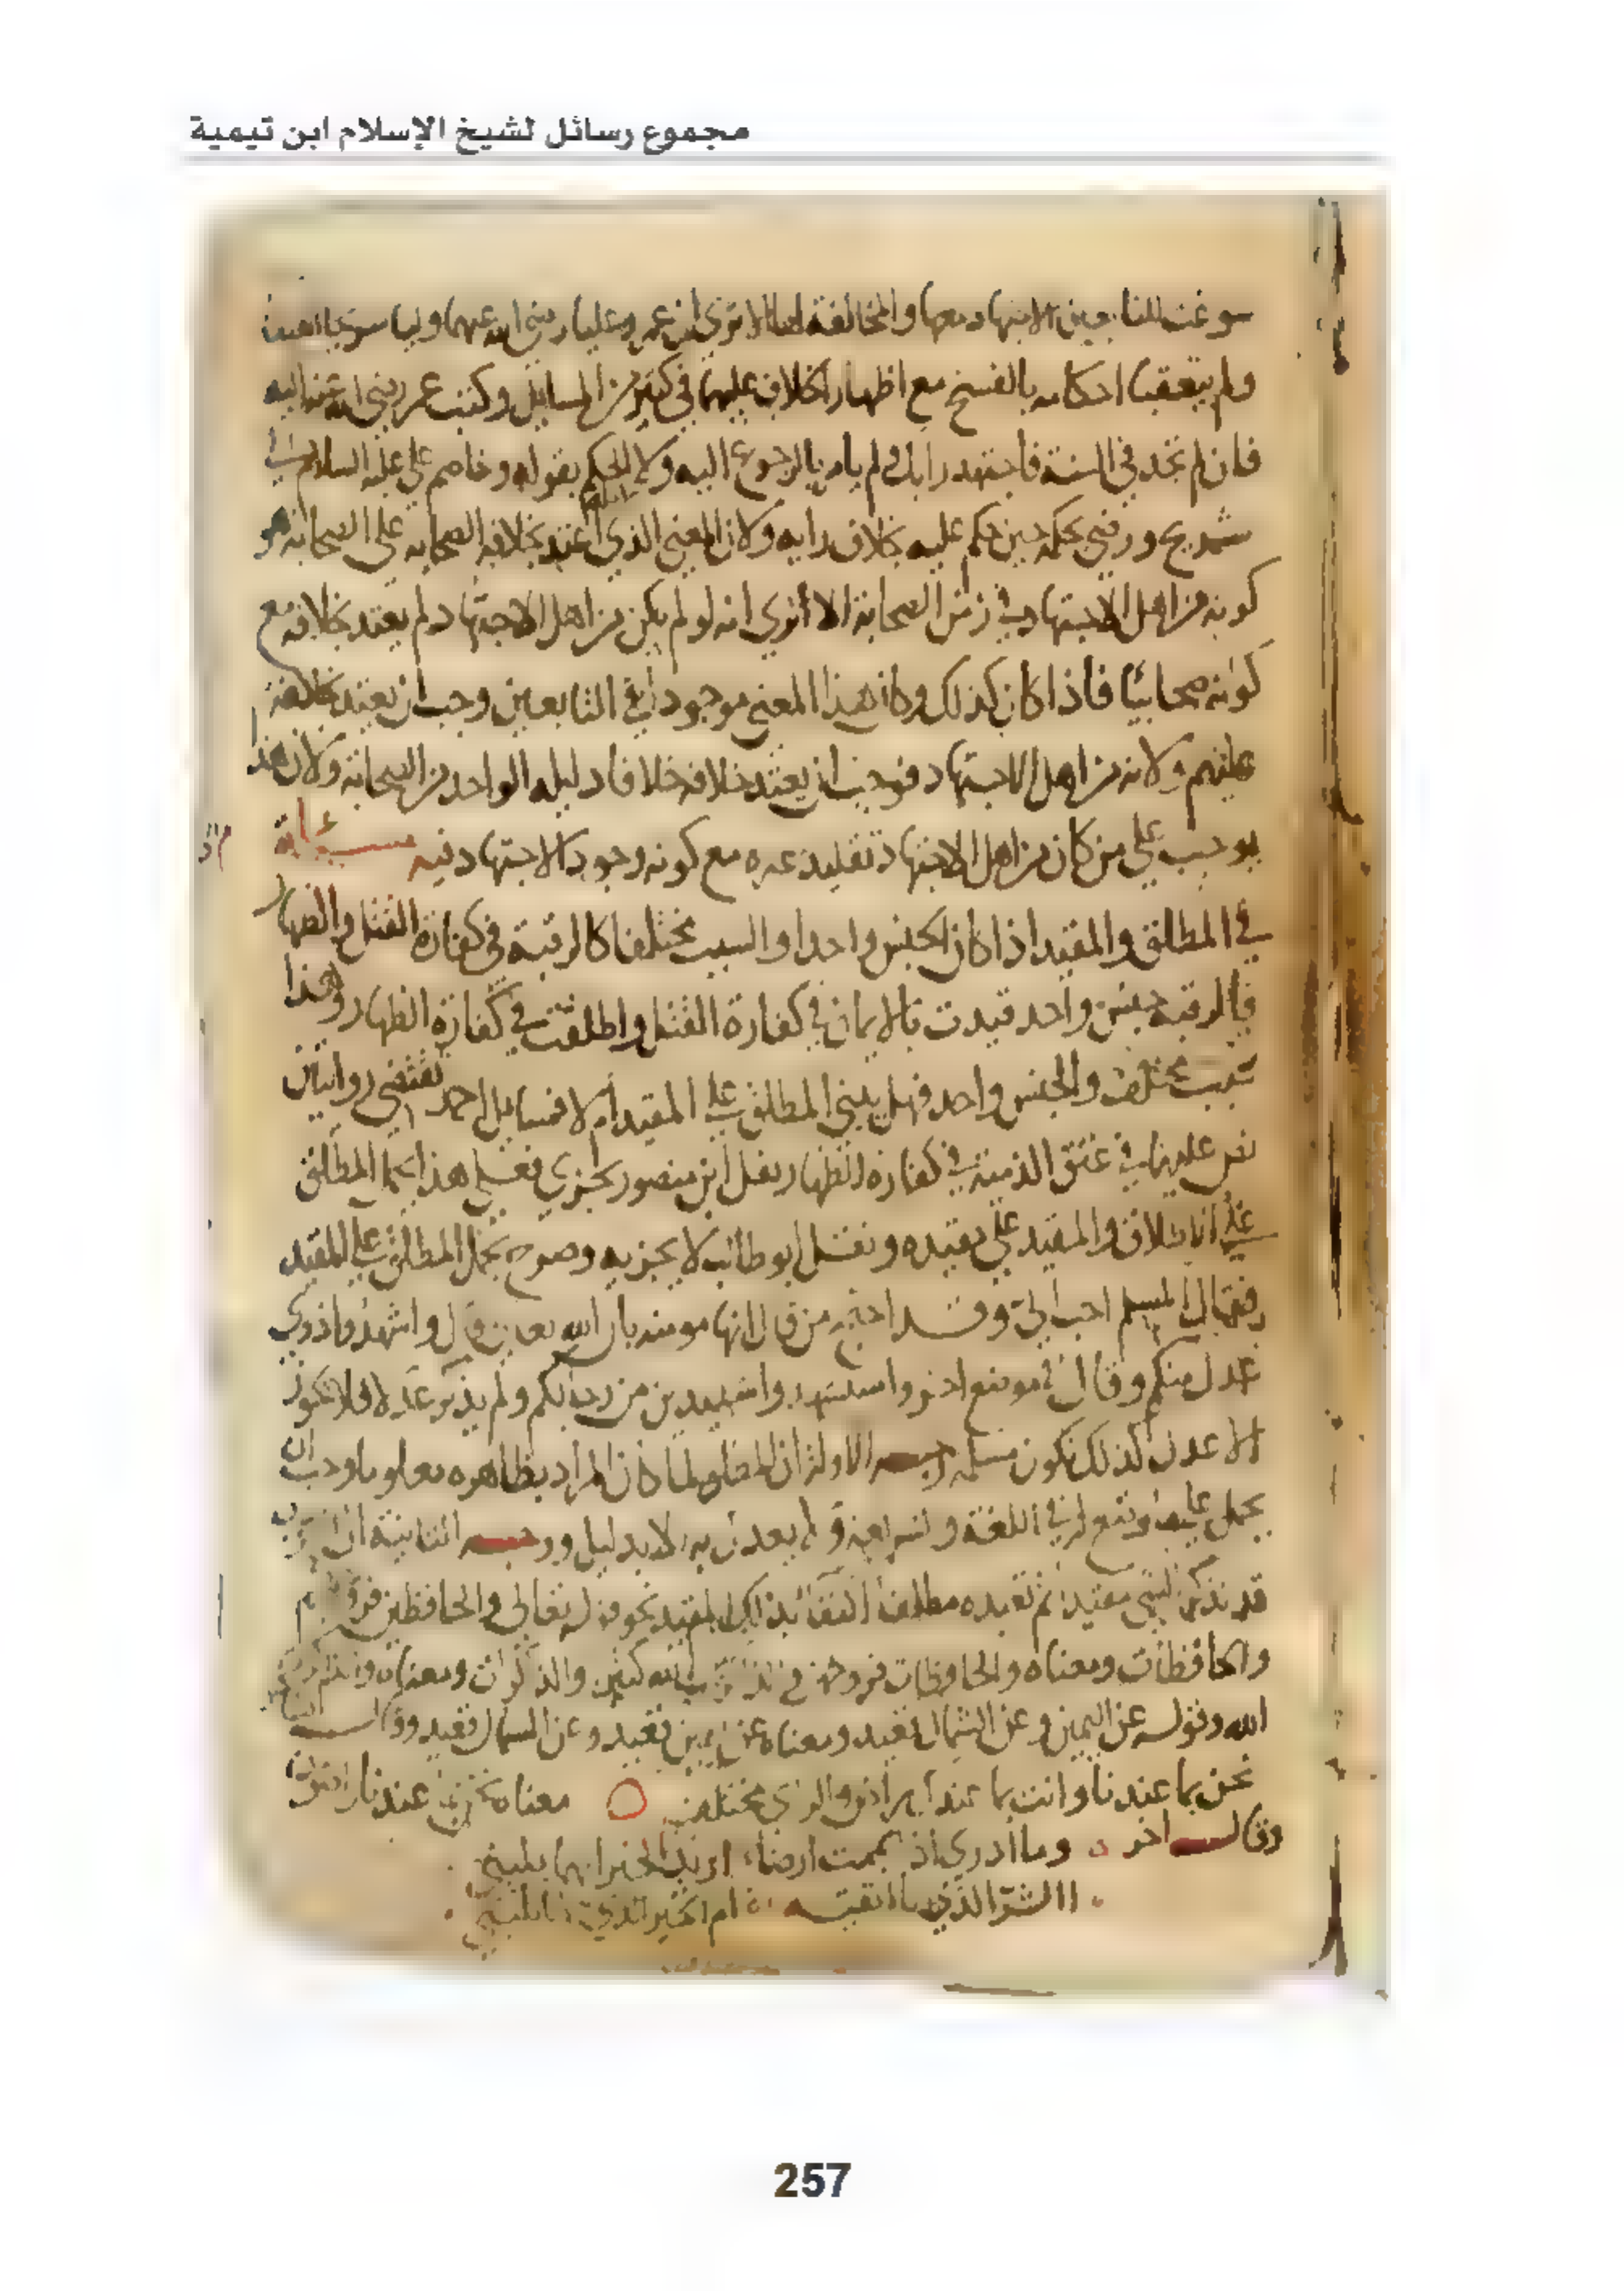 مجموع رسائل لشيخ الإسلام ابن تيمية
سوغت للتابعين الاجتهاد معها والمخالفة لها الا ترى ان عمر وعليا رضي الله عنهما وليا شريحا القضا
ولم يتعقبا احكامه بالفسخ مع اظهار الخلاف عليهما في كثير من المسايل وكتب عمر رضي الله عنه اليه
فان لم تجد في السنة فاجتهد رايك ولم يامره بالرجوع اليه ولا الحكم بقوله وخاصم علي عليه السلام الى
شريح ورضي بحكمه حين حكم عليه بخلاف رايه ولان المعنى الذي اعتد بخلاف الصحابه على الصحابة هو
كونه من اهل الاجتهاد في زمن الصحابة الا ترى انه لو لم يكن من اهل الاجتهاد لم يعتد بخلافه مع
كونه صحابيا فاذا كان كذلك وكان هذا المعنى موجودا في التابعين وجب ان يعتد بخلافه
عليهم ولانه من اهل الاجتهاد فوجب ان يعتد بخلافه خلافا دليله الواحد من الصحابة ولان هذا
يوجب على من كان من اهل الاجتهاد تقليد غيره مع كونه وجود الاجتهاد فيه مسئلة
في المطلق والمقيد اذا كان الجنس واحدا والسبب مختلفا كالرقبة في كفارة القتل والظهار
فالرقبة جنس واحد قيدت بالايمان في كفارة القتل واطلقت في كفارة الظهار وهذا
سبب مختلف والجنس واحد فهل يبنى المطلق على المقيد ام لا فمسايل احمد تقتضي روايتان
نص عليهما في عتق الذمية في كفارة الظهار نقل ابن منصور يجزي فعلى هذا يحمل المطلق
على اطلاقه والمقيد على تقييده ونقل ابو طالب لا يجزيه وصرح بحمل المطلق على المقيد
فقال المسلم احب الي وقد احتج من قال انها مومنة بان الله تعالى قال واشهدوا ذوي
عدل منكم وقال في موضع اخر واستشهدوا شهيدين من رجالكم ولم يذكر عدلا فلا تكون
الا عدل كذلك تكون مسلمه وجه الاوله ان المطلق لما كان المراد بظاهره معلوما وجب ان
يحمل عليه وضع له في اللغة والشريعة ولم يعدل به الا بدليل ووجه الثانية ان
قد تذكر الشي مقيدا ثم تعيده مطلقا اكتفا بذلك المقيد نحو قوله تعالى والحافظين فروجهم
والحافظات ومعناه والحافظات فروجهن والذاكرين الله كثيرا والذاكرات ومعناه والذاكرات
الله وقوله عن اليمين وعن الشمال قعيد ومعناه عن اليمين قعيد وعن الشمال قعيد وقال الشاعر
نحن بما عندنا وانت بما عندك راض والراي مختلف معناه نحن بما عندنا راضون
وقال اخر وما ادري اذا يممت ارضا اريد الخير ايهما يليني
االشر الذي انا اتقيه ام الخير الذي
257